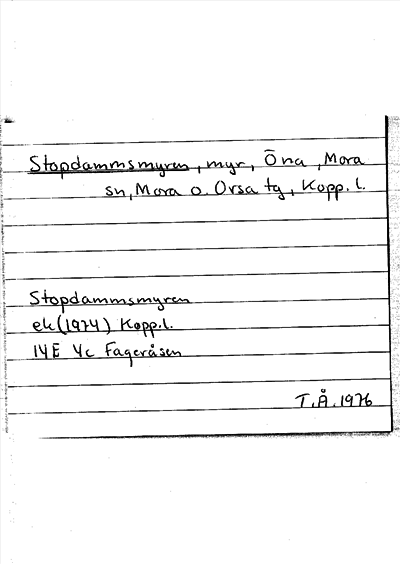 Stopdammsmyren, myr, Öna, Mora
sn, Mora o. Orsa tg, Kopp. l.
Stopdammsmyren
ek (1974) Kopp.l.
14E 4c Fageråsen
T.Å. 1976